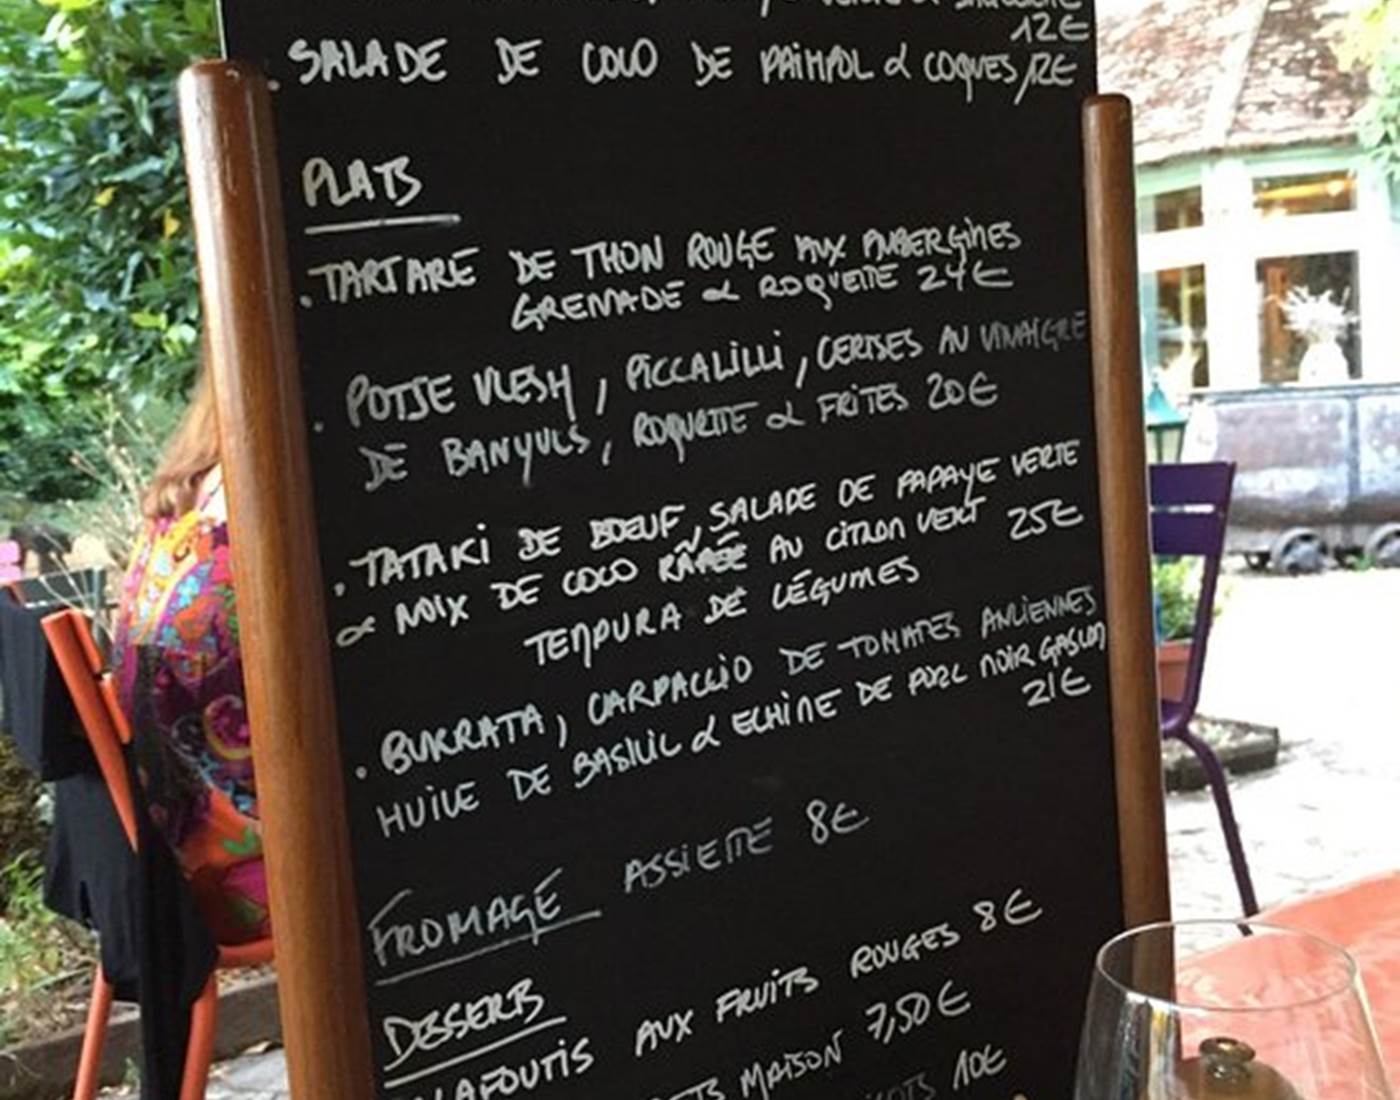 12€
. SALADE DE COCO DE PAIMPOL & COQUES 12€
PLATS
. TARTARE DE THON ROUGE AUX AUBERGINES
GRENADE & ROQUETTE 24€
. POTJE VLESH, PICCALILLI, CERISES AU VINAIGRE
DE BANYULS, ROQUETTE & FRITES 20€
. TATAKI DE BŒUF, SALADE DE PAPAYE VERTE
& NOIX DE COCO RÂPÉE AU CITRON VERT 25€
TEMPURA DE LÉGUMES
. BURRATA, CARPACCIO DE TOMATES ANCIENNES
HUILE DE BASILIC & ECHINE DE PORC NOIR GASCON
21€
FROMAGE ASSIETTE 8€
DESSERTS
LAFOUTIS AUX FRUITS ROUGES 8€
MAISON 7,50€
10€